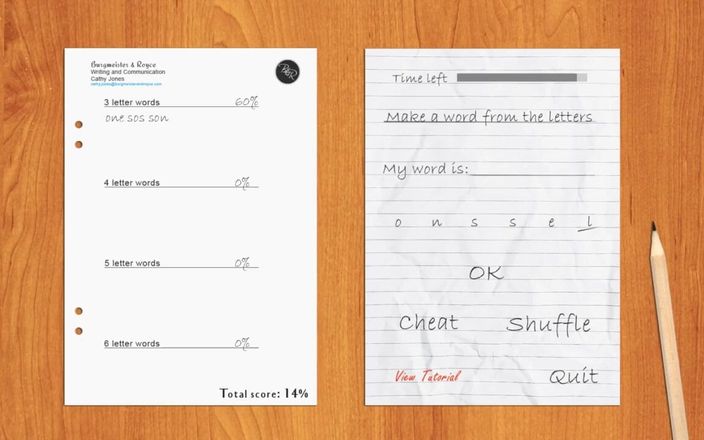 Burgmeister & Royce
Writing and Communication
Cathy Jones
cathy.jones@burgmeisterandroyce.com
B&R
3 letter words 60%
one sos son
4 letter words 0%
5 letter words 0%
6 letter words 0%
Total score: 14%
Time left
Make a word from the letters
My word is:
o n s s e l
OK
Cheat Shuffle
View Tutorial Quit